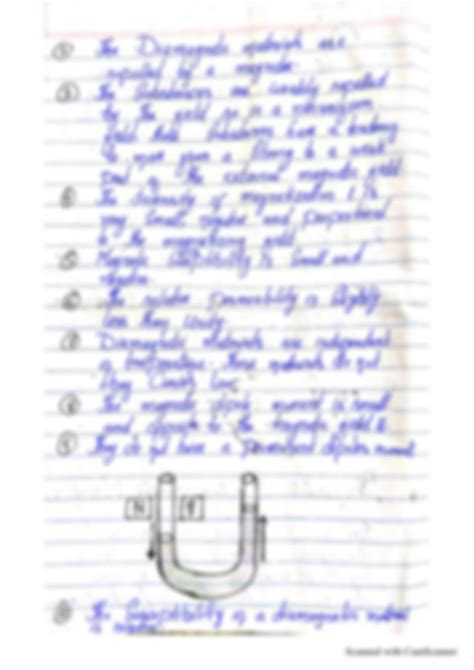 The Diamagnetic materials are
repelled by a magnet.
The Substances are weakly repelled
by the field so in a
field these Substances have a tendency
to move from a Strong to a weak
of the external magnetic field
The intensity of magnetization I is
very Small, negative and proportional
to the magnetising field.
Magnetic Susceptibility is Small and
negative.
The relative permeability is Slightly
less than unity.
Diamagnetic Materials are independent
of temperature. These materials do not
Obey Curie's law
The magnetic dipole moment is small
and opposite to the magnetic field
They do not have a permanent dipole moment
N
The Susceptibility of a diamagnetic material
is negative.
Scanned with CamScanner